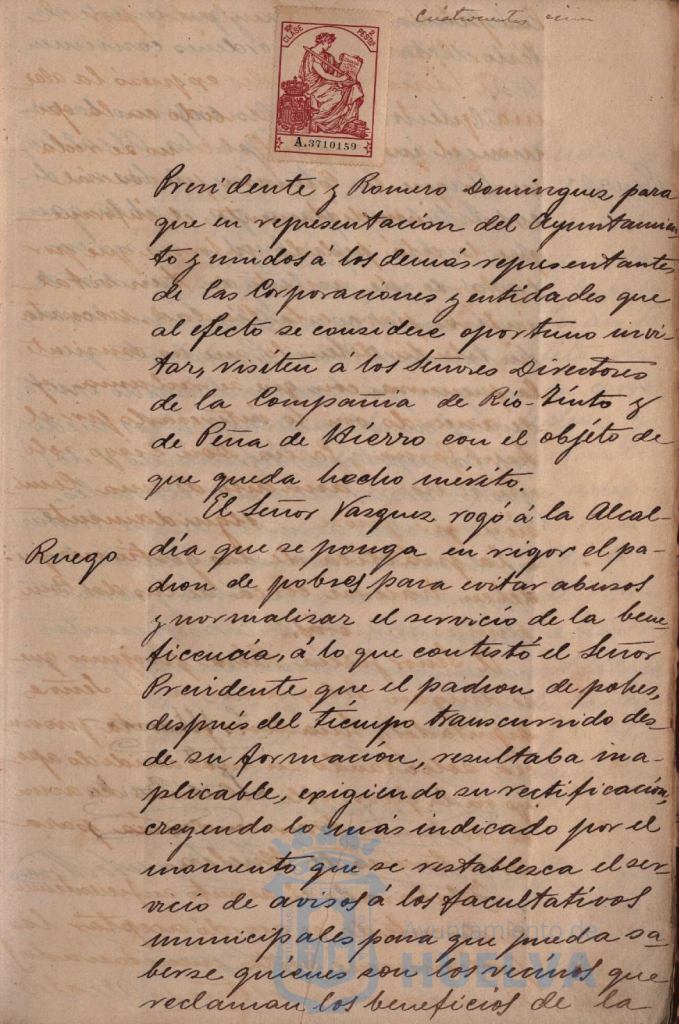 Cuatrocientos cinco
10ª CLASE
2 PESETAS
A.3710159
Presidente y Romero Dominguez para
que en representación del Ayuntamien-
to y unidos á los demás representantes
de las Corporaciones y entidades que
al efecto se considere oportuno invi-
tar, visiten á los Señores Directores
de la Compañia de Rio-Tinto y
de Peña de Hierro con el objéto de
que queda hecho mérito.
El Señor Vasquez rogó á la Alcal-
Ruego
día que se ponga en vigor el pa-
dron de pobres para evitar abusos
y normalisar el servicio de la bene-
ficencia, á lo que contestó el Señor
Presidente que el padron de pobres,
después del tiempo transcurrido des-
de su formación, resultaba ina-
plicable, exigiendo su rectificación,
creyendo lo más indicado por el
momento que se restablezca el ser-
vicio de avisos á los facultativos
municipales para que pueda sa-
berse quienes son los vecinos que
reclaman los beneficios de la
Ayuntamiento de
HUELVA